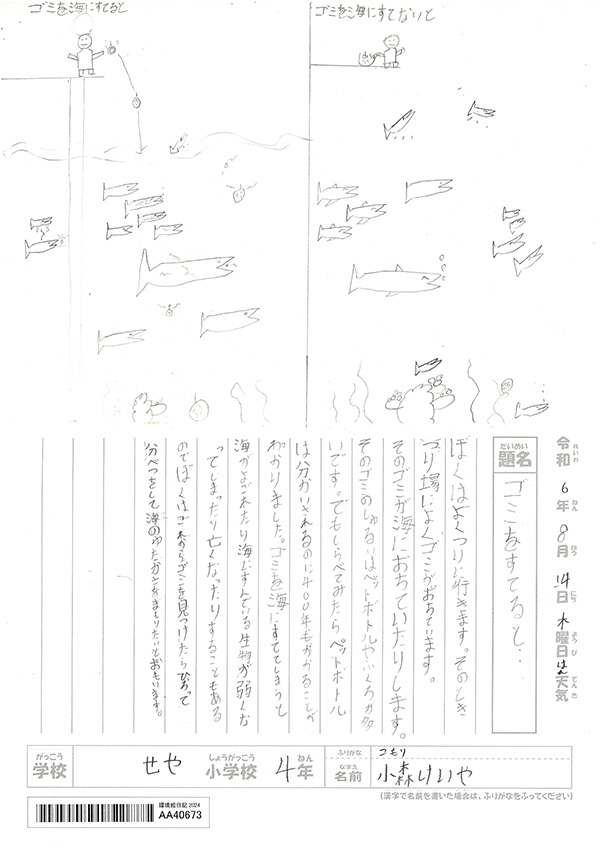 ゴミを海にすてると
ゴミを海にすてないと
令和6年8月14日木曜日はれ天気
れいわ ねん がつ にち ようび てんき
だいめい
題名
ゴミをすてると‥
ぼくはよくつりに行きます。そのとき
つり場によくゴミがおちています。
そのゴミが海におちていたりします。
そのゴミのしゅるいはペットボトルやふくろが多
いです。でもしらべてみたらペットボトル
は分かいされるのに400年もかかることが
わかりました。ゴミを海にすててしまうと
海がよごれたり海にすんでいる生物が弱くな
ってしまったり亡くなったりすることもある
のでぼくはこれからゴミを見つけたらひろって
分べつをして海のゆたかさをまもりたいとおもいます。
がっこう
学校
せや
しょうがっこう
小学校
4年
ねん
ふりがな
コモリ
なまえ
名前
小森けいや
(漢字で名前を書いた場合は、ふりがなをふってください)
環境絵日記2024
AA40673